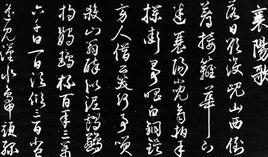 襄陽歌
落日欲沒峴山西倒
著接籬華下
迷襄陽小兒齊拍手
攔街爭唱白銅鞮
旁人借問笑何事笑
殺山翁醉似泥鸕鶿
杓鸚鵡杯百年三萬
六千日一日須傾三百杯
遙看漢水鴨頭綠